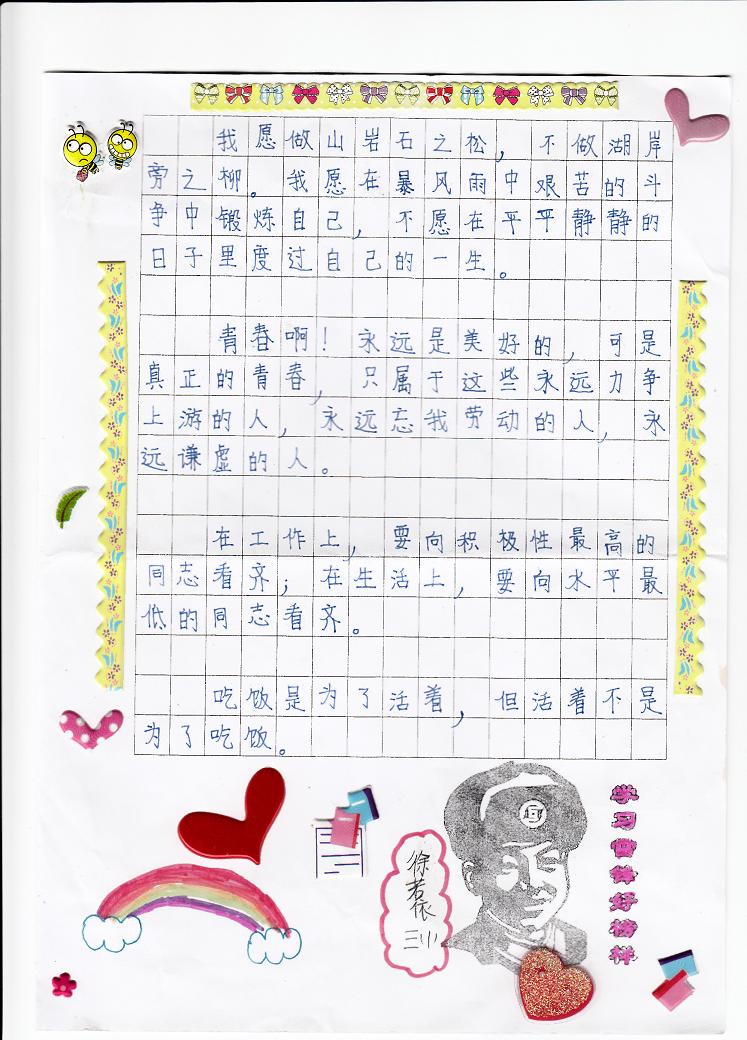 我愿做山岩石之松，不做湖岸
旁之柳。我愿在暴风雨中艰苦的斗
争中锻炼自己，不愿在平平静静的
日子里度过自己的一生。
青春啊！永远是美好的，可是
真正的青春，只属于这些永远力争
上游的人，永远忘我劳动的人，永
远谦虚的人。
在工作上，要向积极性最高的
同志看齐；在生活上，要向水平最
低的同志看齐。
吃饭是为了活着，但活着不是
为了吃饭。
学习雷锋好榜样
徐若依